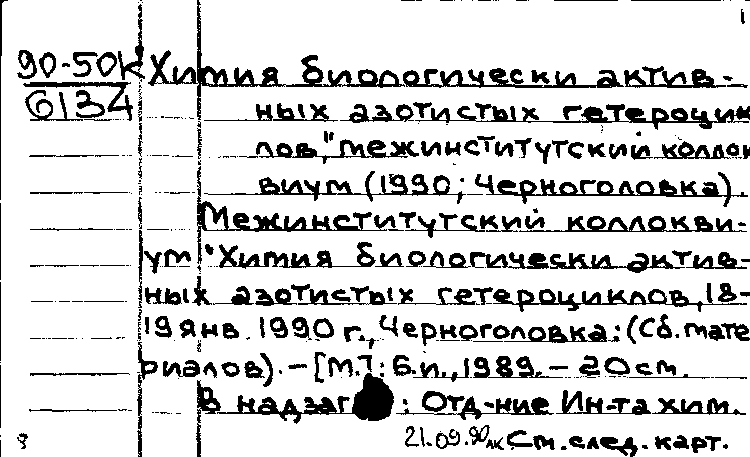 1
90-50К Химия биологически актив-
6134 ных азотистых гетероцик
лов", межинститутский коллок
виум (1990; Черноголовка).
Межинститутский коллокви-
ум "Химия биологически актив-
ных азотистых гетероциклов, 18-
19 янв. 1990 г., Черноголовка: (Сб. мате
риалов). - [М.]: Б.и., 1989. - 20 см.
В надзаг : Отд-ние Ин-та хим.
21.09.90 См. след. карт.